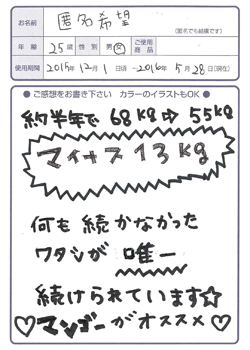 お名前 匿名希望
(匿名でも結構です)
年齢 25歳 性別 男・女 ご使用商品
使用期間 2015年12月1日頃~2016年5月28日(現在)
●ご感想をお書き下さい カラーのイラストもOK●
約半年で 68kg⇨55kg
マイナス13kg
何も続かなかった
ワタシが唯一
続けられています☆
♡マンゴーがオススメ♡